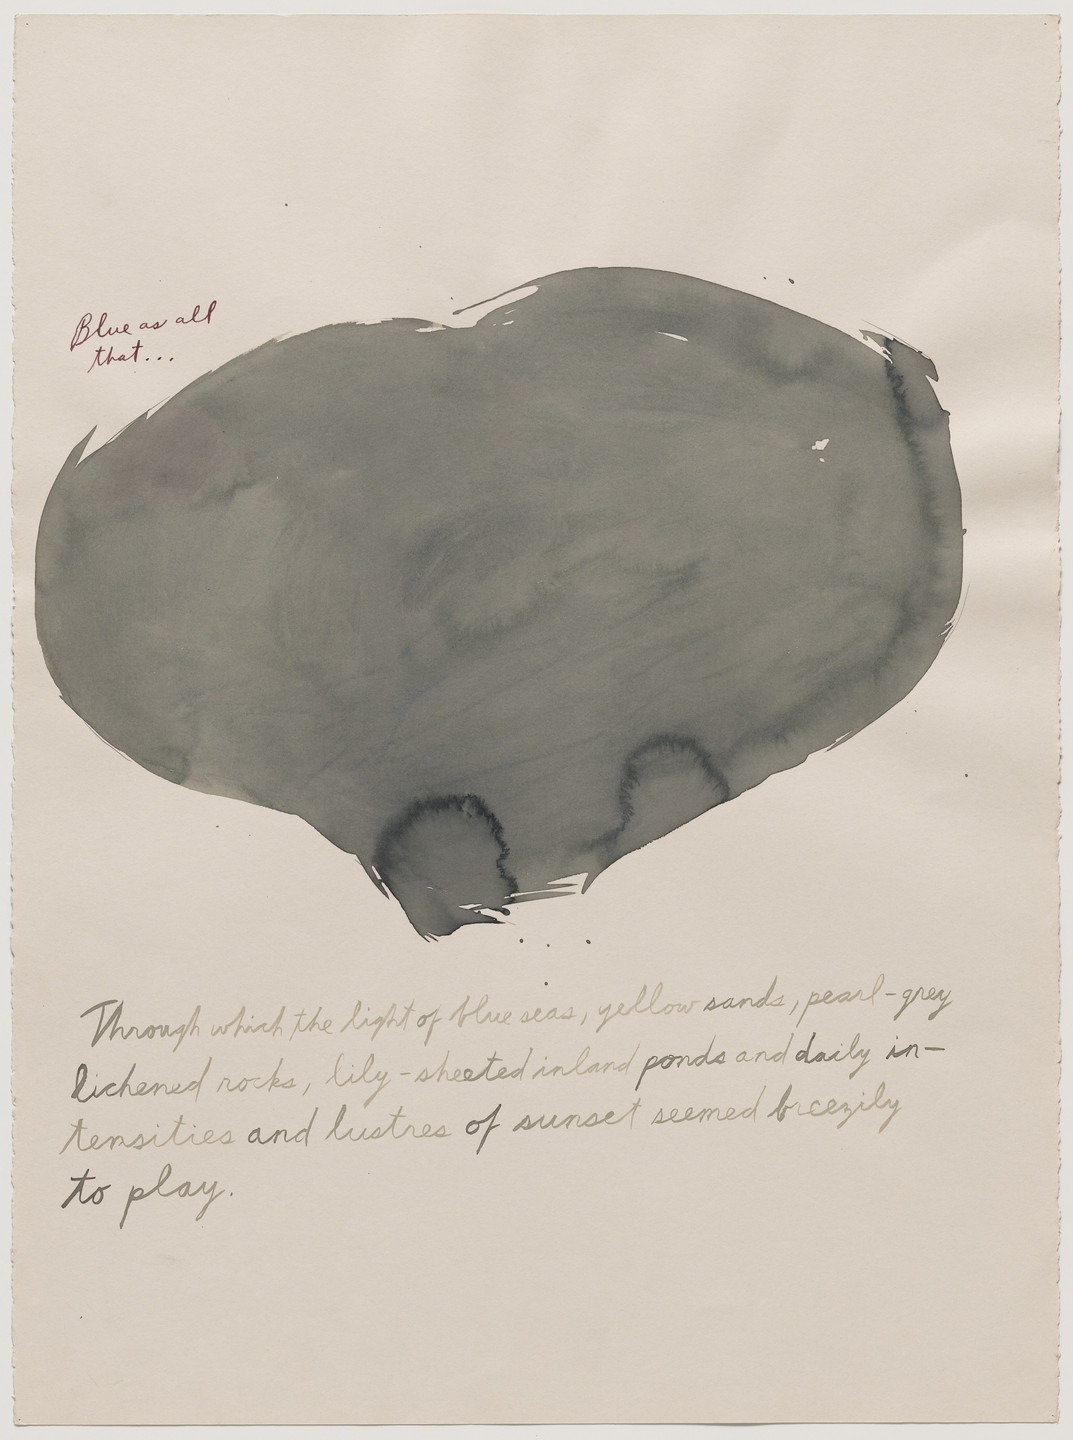 Blue as all
that...
Through which the light of blue seas, yellow sands, pearl-grey
lichened rocks, lily-sheeted inland ponds and daily in-
tensities and lustres of sunset seemed breezily
to play.